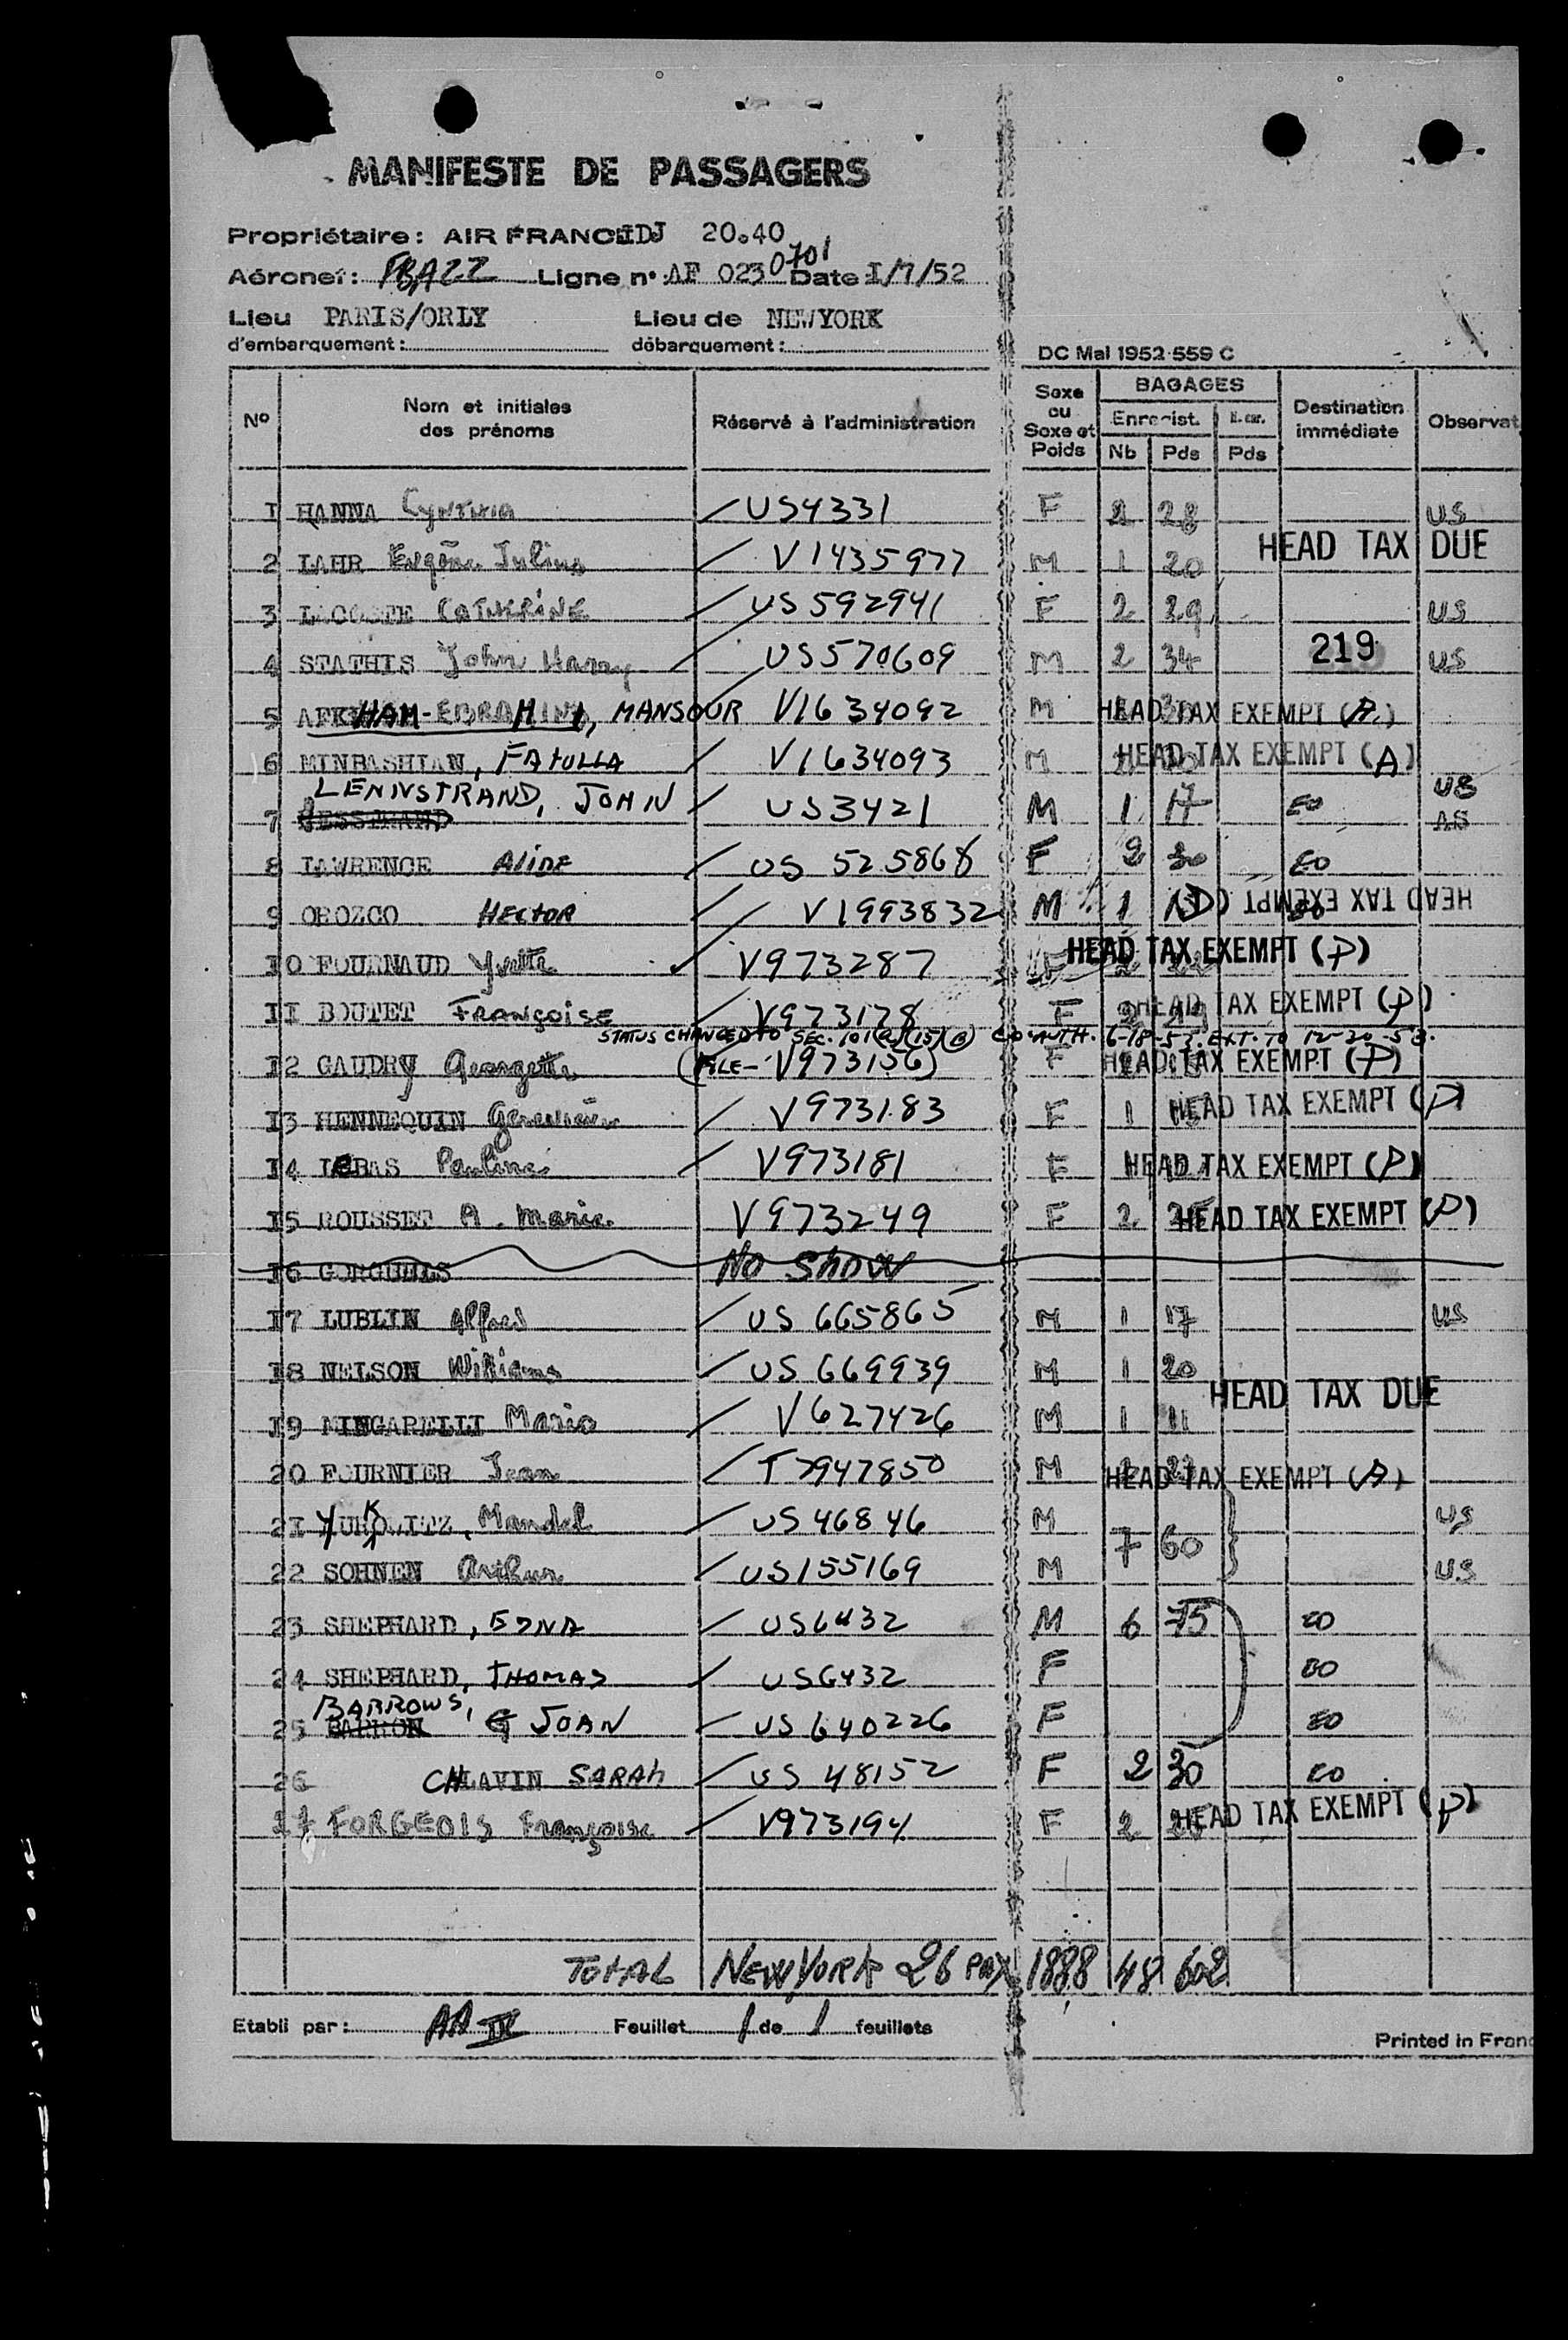 MANIFESTE DE PASSAGERS
Propriétaire: AIR FRANCE IDJ 20.40
0701
Aéronef: FBAZZ Ligne n° AF 023 Date I/7/52
Lieu PARIS/ORLY Lieu de NEWYORK
d'embarquement: débarquement:
DC Mai 1952 559 C
Nº Nom et initiales des prénoms Réservé à l'administration Sexe ou Sexe et Poids BAGAGES Enregist. Nb Pds Pds Destination immédiate Observat
I HANNA Cynthia US4331 F 2 28 US
HEAD TAX DUE
2 LAHR Eugène Julius V1435977 M 1 20
3 LACOSTE CATHERINE US592941 F 2 29 US
4 STATHIS John Harry US570609 M 2 34 219 US
5 AFKHAM-EBRAHIMI, MANSOUR V1634092 M HEAD TAX EXEMPT (A)
6 MINBASHIAN, FATULLA V1634093 M HEAD TAX EXEMPT (A)
LENNSTRAND, JOHN
7 US3421 M 1 17 EO US
AS
8 LAWRENCE Aline US 525868 F 2 30 EO
9 OROZCO HECTOR V1993832 M 1 HEAD TAX EXEMPT
10 FOURNAUD Yvette V973287 F 2 HEAD TAX EXEMPT (P)
II BOUTET Françoise V973178 F 2 HEAD TAX EXEMPT (P)
STATUS CHANGED TO SEC. 101(a)(15)(B) CO AUTH. 6-18-53. EXT. TO 12-20-53.
I2 GAUDRY Georgette (FILE- V973156) F HEAD TAX EXEMPT (P)
I3 HENNEQUIN Geneviève V973183 F 1 HEAD TAX EXEMPT (P)
I4 LEBAS Pauline V973181 F HEAD TAX EXEMPT (P)
I5 ROUSSET A. Marie V973249 F 2 HEAD TAX EXEMPT (P)
I6 GORGUELS No Show
I7 LUBLIN Alfred US 665865 M 1 17 US
I8 NELSON Williams US 669939 M 1 20
HEAD TAX DUE
I9 MINGARELLI Mario V627426 M 1 11
20 FOURNIER Jean T2947850 M HEAD TAX EXEMPT (A)
2I YURKOWITZ, Mandel US46846 M US
7 60
22 SOHNEN Arthur US155169 M US
23 SHEPHARD, EDNA US6432 M 6 75 EO
24 SHEPHARD, THOMAS US6432 F EO
BARROWS,
25 BARRON G JOAN US 640226 F EO
26 CHLAVIN SARAH US 48152 F 2 30 EO
27 FORGEOIS Françoise V973194 F 2 HEAD TAX EXEMPT (P)
TOTAL NEW YORK 26 PAX 1888 48 602
Etabli par: AA IV Feuillet 1 de 1 feuillets
Printed in Franc